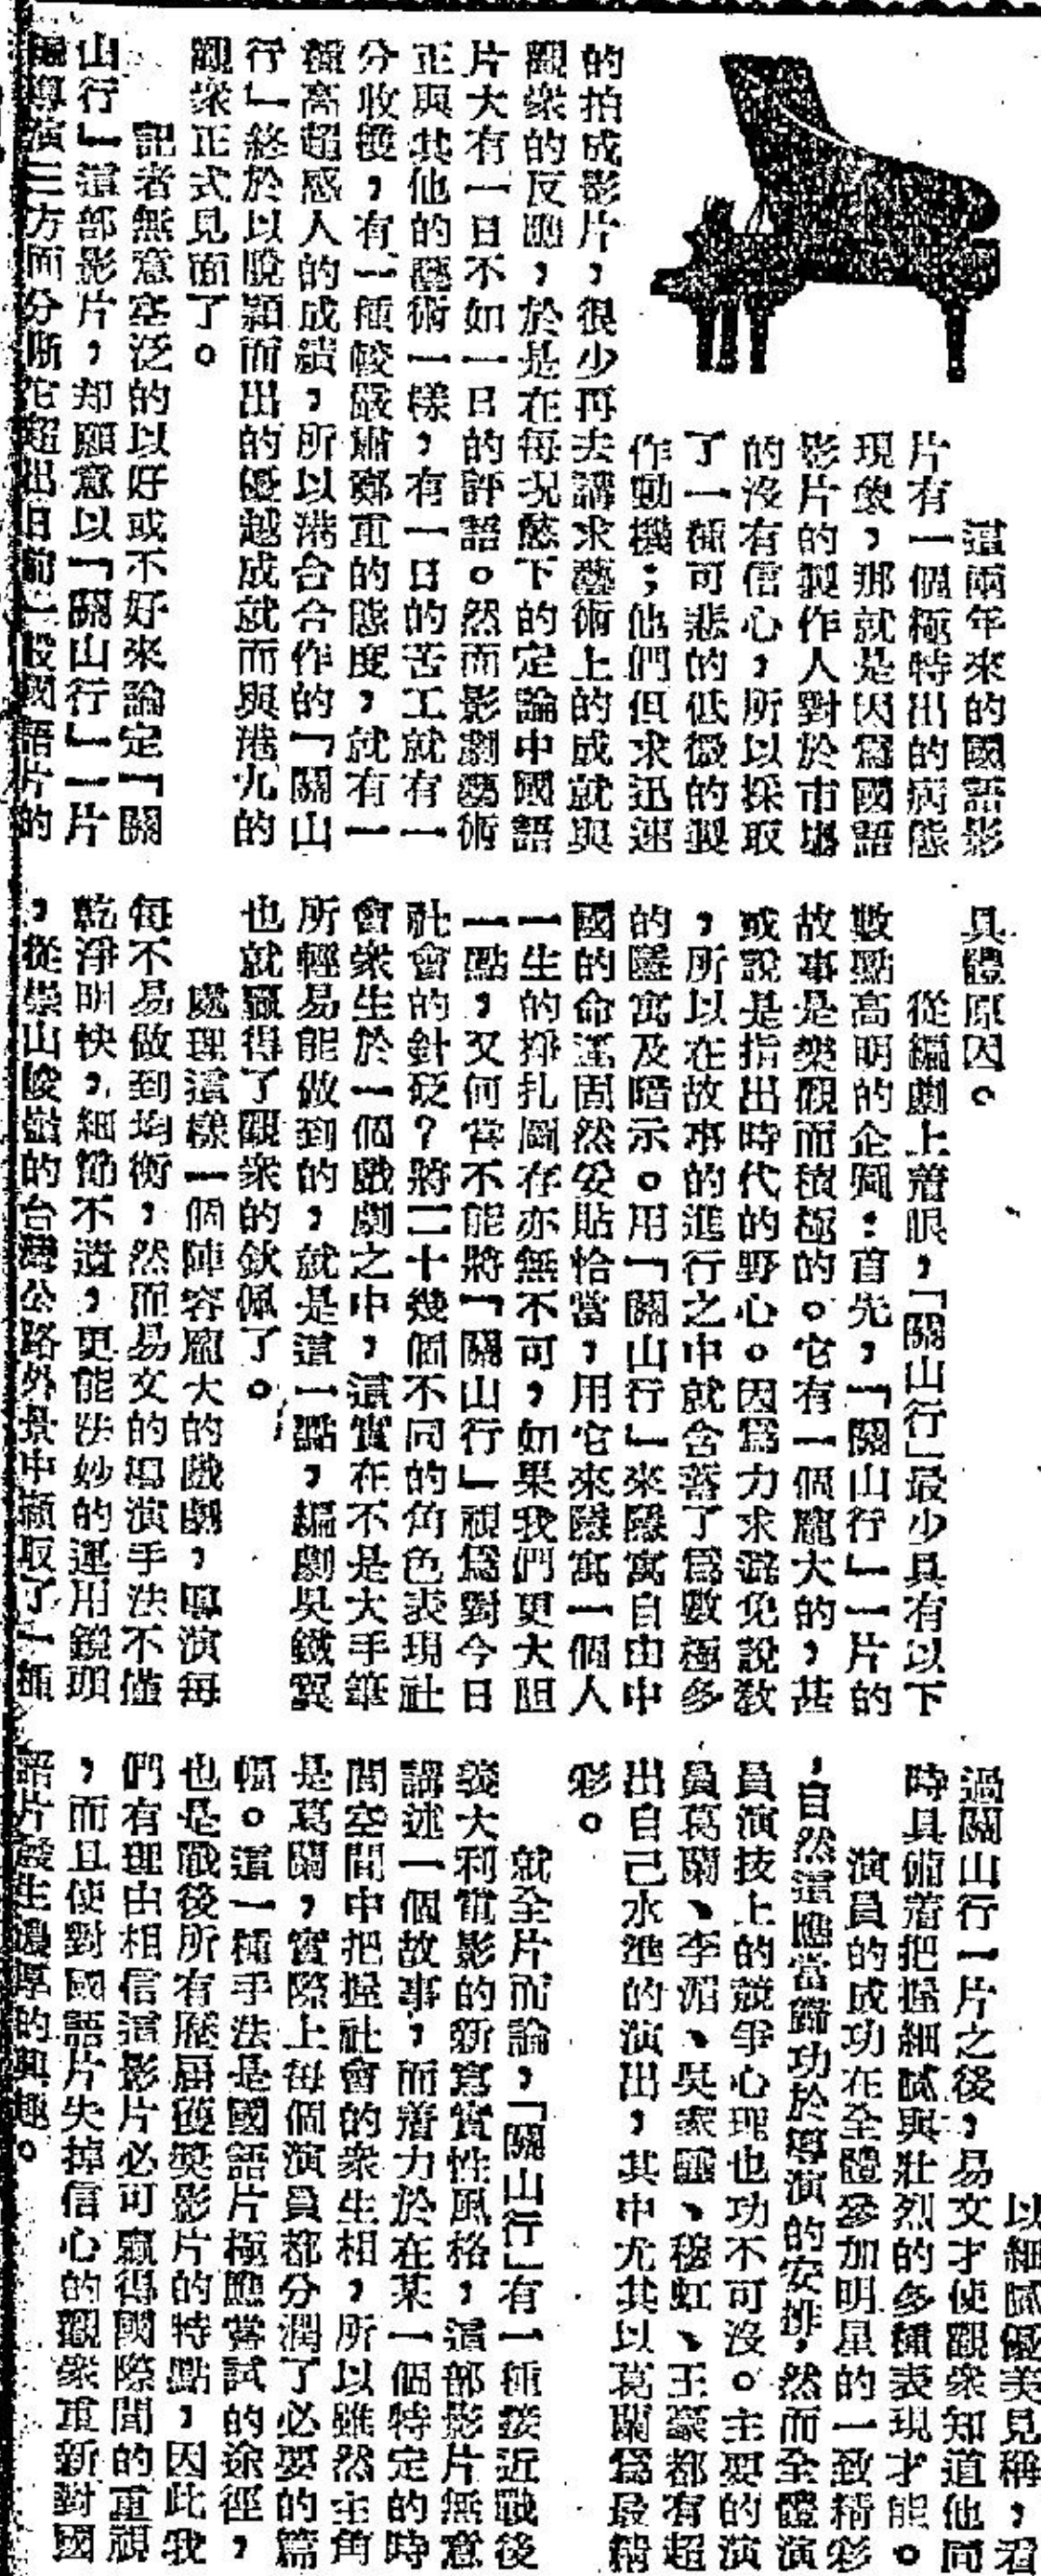 這兩年來的國語影
片有一個極特出的病態
現象，那就是因爲國語
影片的製作人對於市場
的沒有信心，所以採取
了一種可悲的低微的製
作動機；他們但求迅速
的拍成影片，很少再去講求藝術上的成就與
觀衆的反應，於是在每況愈下的定論中國語
片大有一日不如一日的評語。然而影劇藝術
正與其他的藝術一樣，有一日的苦工就有一
分收穫，有一種較嚴肅鄭重的態度，就有一
種高超感人的成績，所以港合合作的「關山
行」終於以脫穎而出的優越成就而與港九的
觀衆正式見面了。
記者無意空泛的以好或不好來論定「關
山行」這部影片，却願意以「關山行」一片
編導演三方面分晰它超出目前一般國語片的
具體原因。
從編劇上着眼，「關山行」最少具有以下
數點高明的企圖：首先，「關山行」一片的
故事是樂觀而積極的。它有一個龐大的，甚
或說是指出時代的野心。因爲力求避免說教
，所以在故事的進行之中就含蓄了爲數極多
的隱寓及暗示。用「關山行」來隱寓自由中
國的命運固然妥貼恰當，用它來隱寓一個人
一生的掙扎圖存亦無不可，如果我們更大胆
一點，又何嘗不能將「關山行」視爲對今日
社會的針砭？將二十幾個不同的角色表現社
會衆生於一個戲劇之中，這實在不是大手筆
所輕易能做到的，就是這一點，編劇吳鐵翼
也就贏得了觀衆的欽佩了。
處理這樣一個陣容龐大的戲劇，導演每
每不易做到均衡，然而易文的導演手法不僅
乾淨明快，細節不遺，更能法妙的運用鏡頭
，從崇山峻嶺的台灣公路外景中擷取了一種
以細膩優美見稱，看
過關山行一片之後，易文才使觀衆知道他同
時具備着把握細膩與壯烈的多種表現才能。
演員的成功在全體參加明星的一致精彩
，自然這應當歸功於導演的安排，然而全體演
員演技上的競爭心理也功不可沒。主要的演
員葛蘭、李湄、吳家驤、穆虹、王豪都有超
出自己水準的演出，其中尤其以葛蘭爲最精
彩。
就全片而論，「關山行」有一種接近戰後
義大利電影的新寫實性風格，這部影片無意
講述一個故事，而着力於在某一個特定的時
間空間中把握社會的衆生相，所以雖然主角
是葛蘭，實際上每個演員都分潤了必要的篇
幅。這一種手法是國語片極應嘗試的途徑，
也是戰後所有歷屆獲獎影片的特點，因此我
們有理由相信這影片必可贏得國際間的重視
，而且使對國語片失掉信心的觀衆重新對國
語片發生濃厚的興趣。